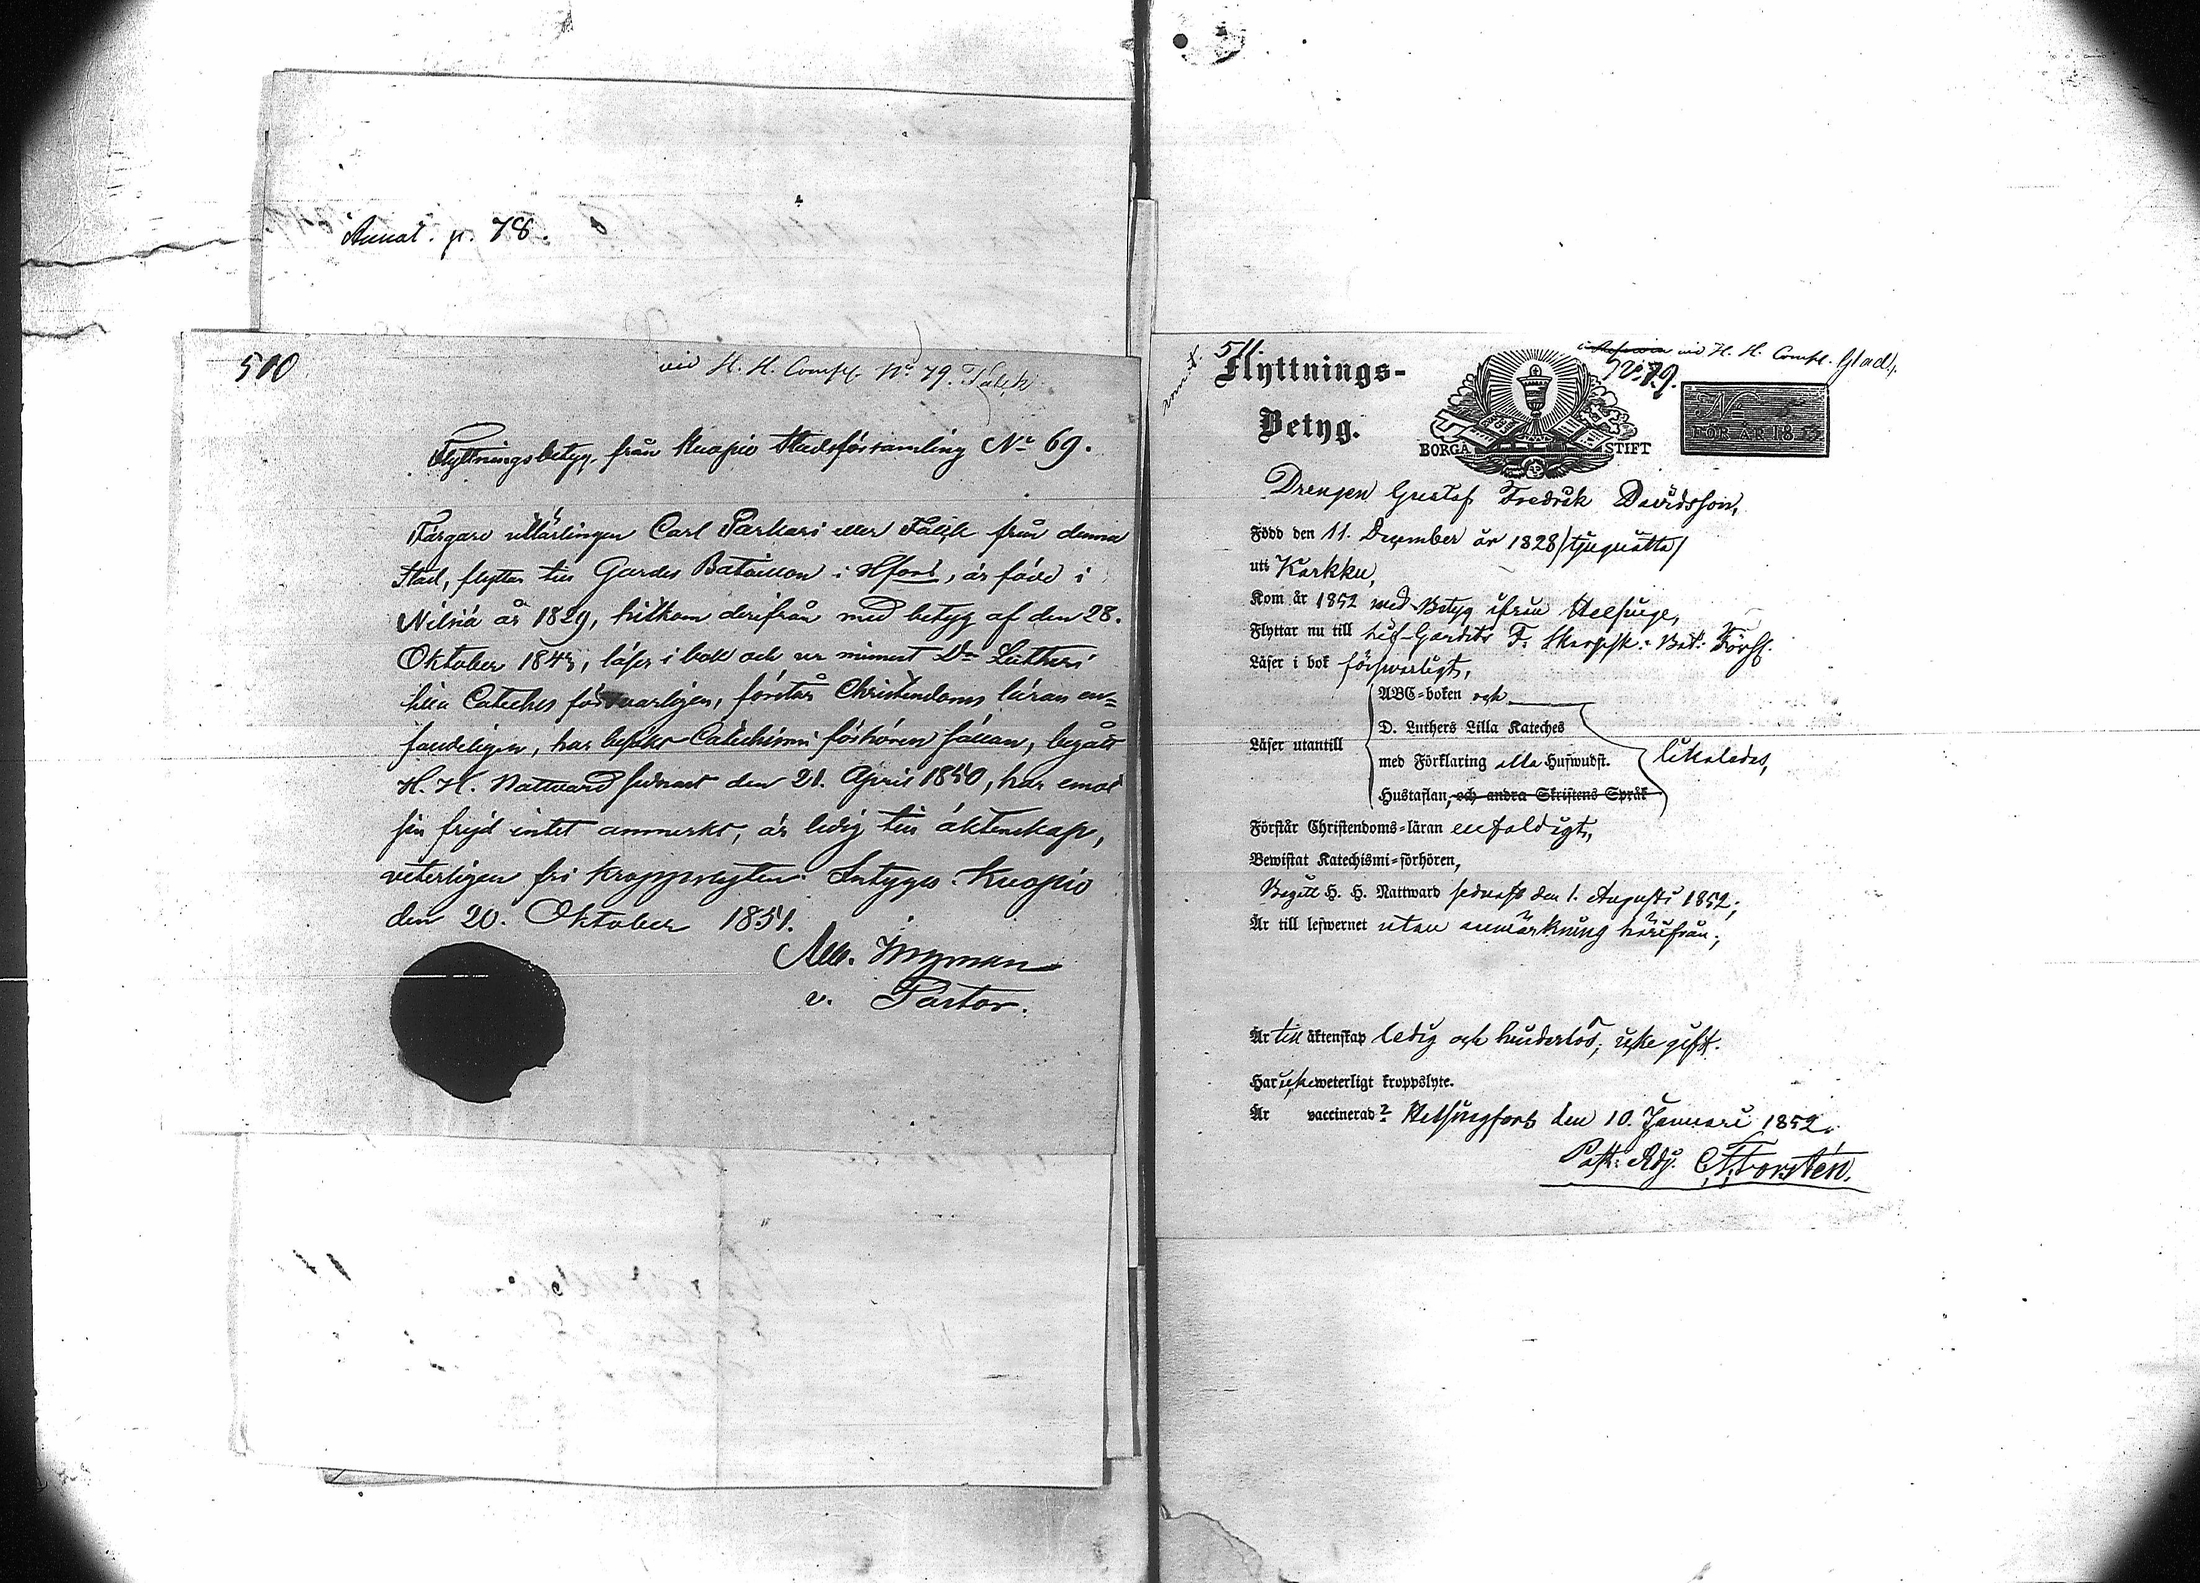 Annot. p. 78.
510
vid H. H. Comp. No 79. Falck
Flyttningsbetyg från Kuopio Stadsförsamling No 69.
Färgare utlärlingen Carl Parkari eller Falck från denna
Stad, flyttar till Gardes Bataillon i Hfors, är född i
Nilsiä år 1829, hitkom derifrån med betyg af den 28.
Oktober 1843, läser i bok och ur minnet Dr Lutheri
lilla Cateches försvarligen, förstår Christendoms läran en-
faudeligen, har besökt Catechismi förhören sällan, begått
H. H. Nattvard sednast den 21. April 1850, har emot
sin frejd intet anmerkt, är ledig till äktenskap,
veterligen fri kroppslyten. Intygar Kuopio
den 20. Oktober 1851.
v. Pastor.
511.
vid H. H. Comp. Glad,
No 79.
Flyttnings-
Betyg.
BORGÅ STIFT
No 5
FÖR ÅR 1853
Drengen Gustaf Fredrik Davidsson,
Född den 11. December år 1828 /tjuguåtta/
uti Karkku,
Kom år 1852 med Betyg ifrån Helsinge,
Flyttar nu till Lif-Gardets F. Skarpsk: Bat: Förs.
Läser i bok försvarligt,
ABC-boken och
D. Luthers Lilla Kateches
Läser utantill
med Förklaring alla Hufwudst.
likaledes,
Hustaflan, och andra Skriftens Språk
Förstår Christendoms-läran enfaldigt,
Bewistat Katechismi-förhören,
Begått H. H. Nattward sednast den 1. Augusti 1852;
Är till lefwernet utan anmärkning härifrån;
Är till äktenskap ledig och hinderlös, icke gift.
Har icke weterligt kroppslyte.
Är vaccinerad? Helsingfors den 10. Januari 1852.
Past: Adj. Forstén.